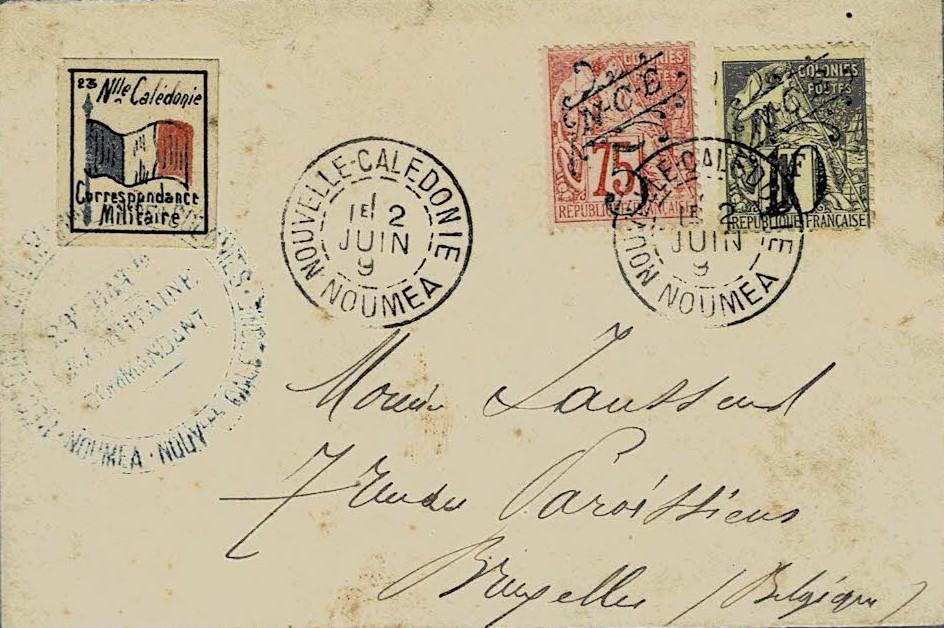 23
Nlle Calédonie
Correspondance
Militaire
NOUVELLE-CALEDONIE
1E/ 2
JUIN
9
NOUMEA
COLONIES
POSTES
N-C-E
75
5
REPUBLIQUE FRANÇAISE
COLONIES
POSTES
N-C
1F
10
REPUBLIQUE FRANÇAISE
NOUVELLE-CALEDONIE
1E 2
JUIN
9
NOUMEA
CAPITAINE
COMMANDANT
NOUMEA · NOUVLLE CALE
7 Rue des Paroissiens
Bruxelles (Belgique)